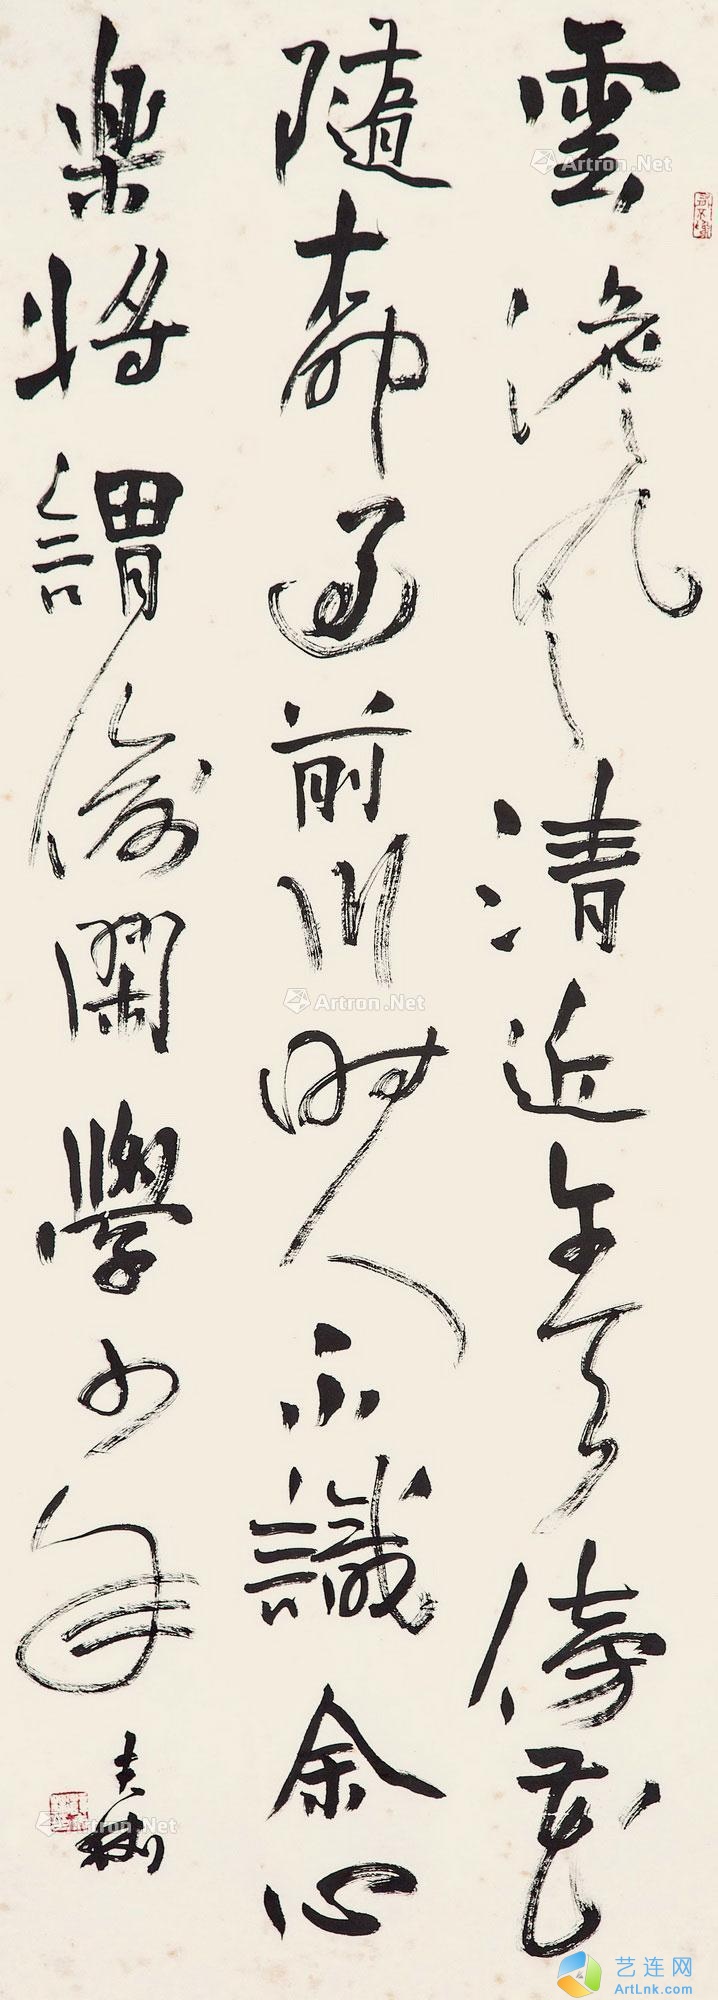 雲澹風清近午天傍花
隨柳過前川時人不識余心
樂將謂偷閑學少年
Artron.Net
Artron.Net
Artron.Net
艺连网
ArtLnk.com